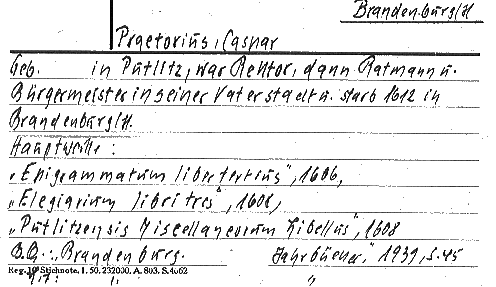 Brandenburg/H
Praetorius, Caspar
Geb. in Putlitz, war Rektor, dann Ratmann u.
Bürgermeister in seiner Vaterstadt u. starb 1612 in
Brandenburg/H.
Hauptwerke:
„Epigrammatum liber tertius", 1606,
„Elegiarum libri tres", 1606,
„Putlitzensis Miscellaneorum Libellus", 1608
B.Q.: Brandenburg. Jahrbücher," 1939, S. 45
Reg. Stichnote, I. 50. 232000. A. 803. S. 4062